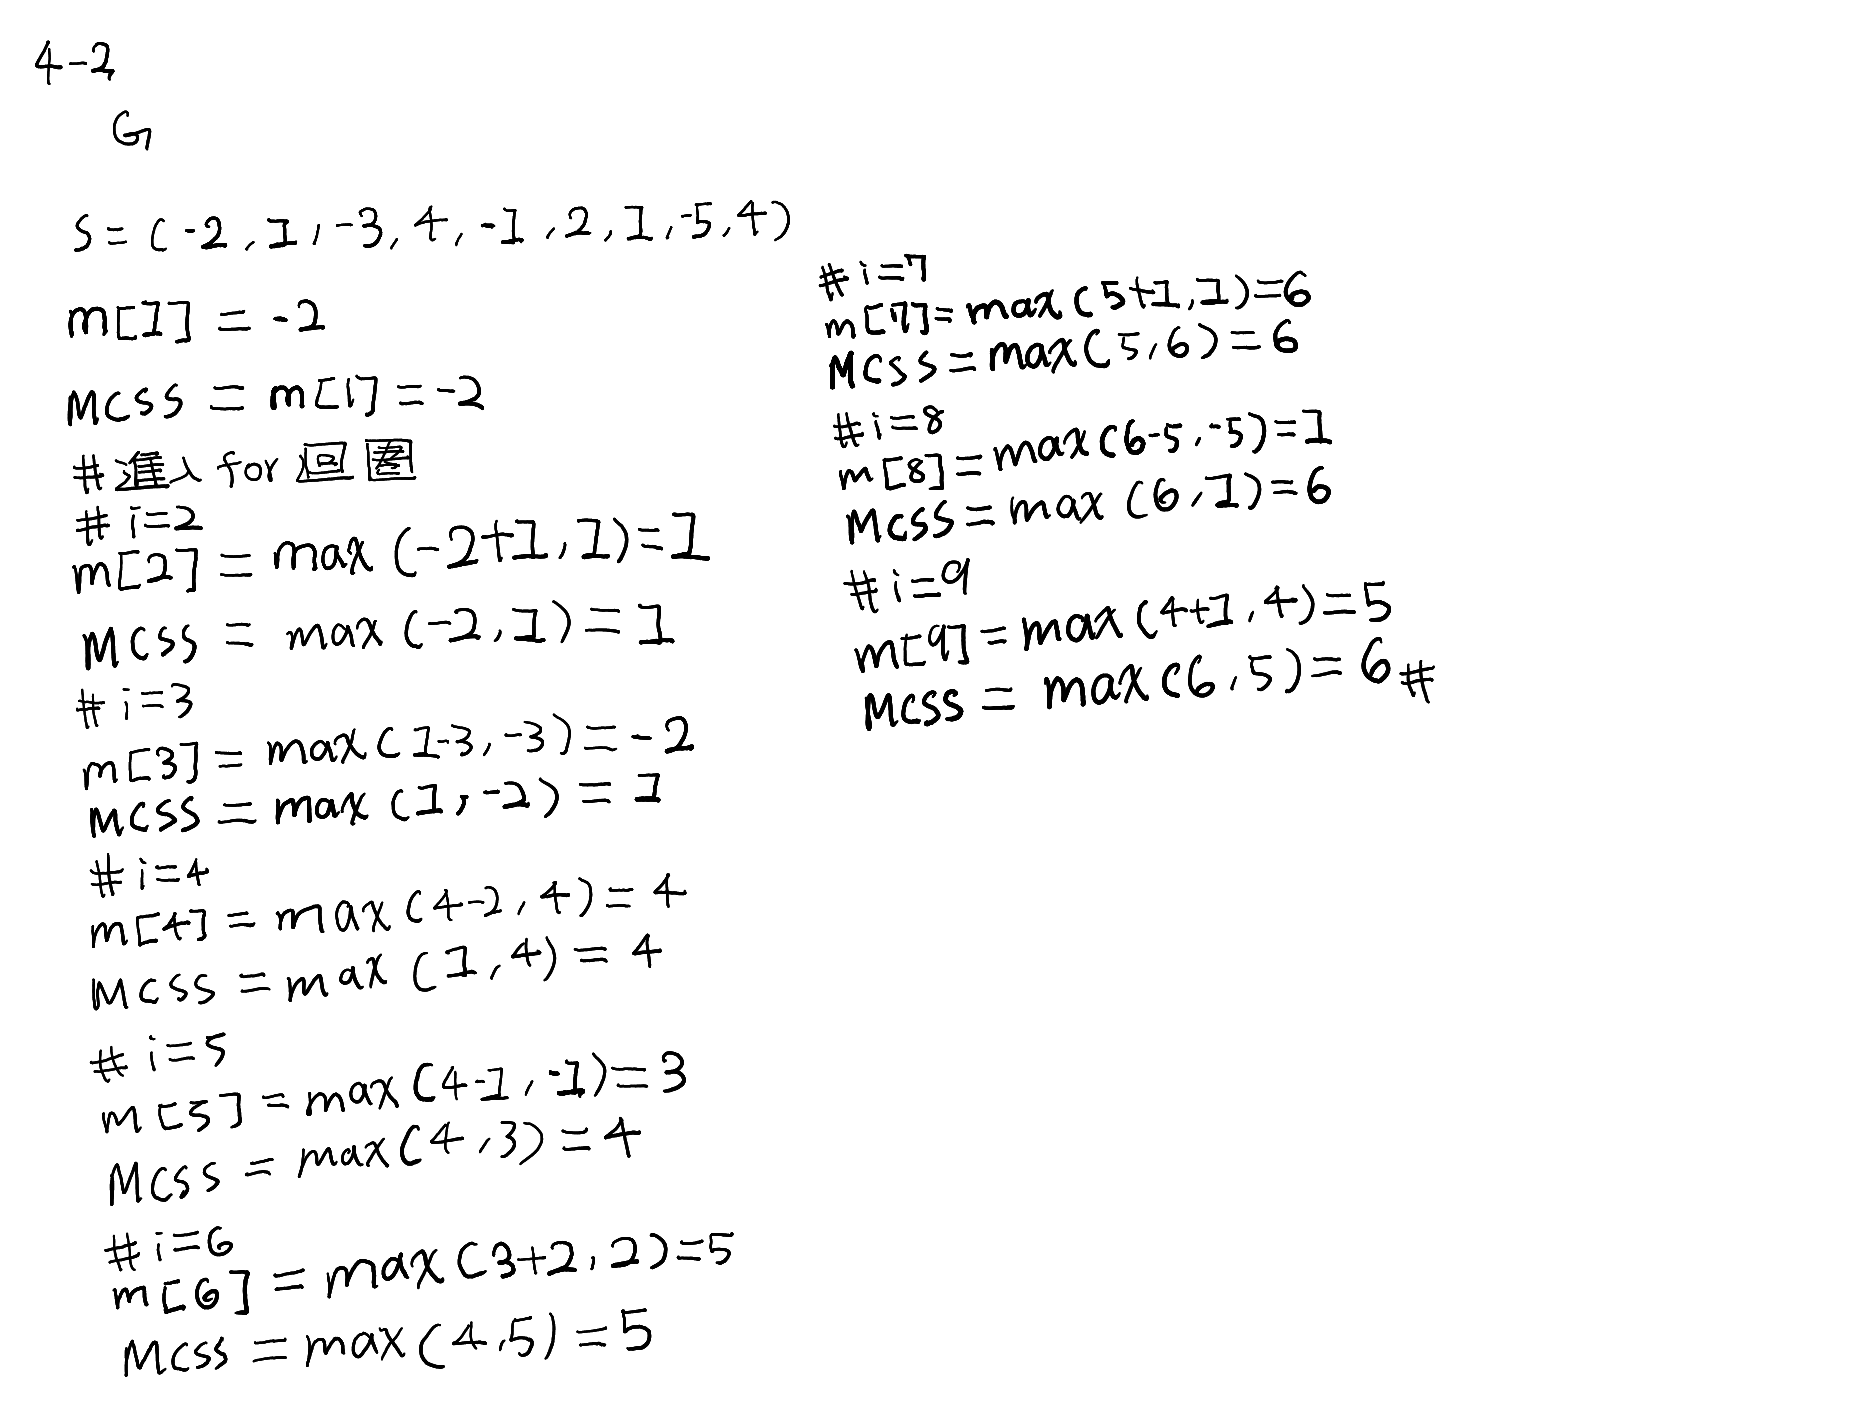 4-2
G
S = (-2, 1, -3, 4, -1, 2, 1, -5, 4)
m[1] = -2
MCSS = m[1] = -2
# 進入 for 回圈
# i=2
m[2] = max (-2+1, 1) = 1
MCSS = max (-2, 1) = 1
# i=3
m[3] = max (1-3, -3) = -2
MCSS = max (1, -2) = 1
# i=4
m[4] = max (4-2, 4) = 4
MCSS = max (1, 4) = 4
# i=5
m[5] = max (4-1, -1) = 3
MCSS = max (4, 3) = 4
# i=6
m[6] = max (3+2, 2) = 5
MCSS = max (4, 5) = 5
# i=7
m[7] = max (5+1, 1) = 6
MCSS = max (5, 6) = 6
# i=8
m[8] = max (6-5, -5) = 1
MCSS = max (6, 1) = 6
# i=9
m[9] = max (4+1, 4) = 5
MCSS = max (6, 5) = 6 #